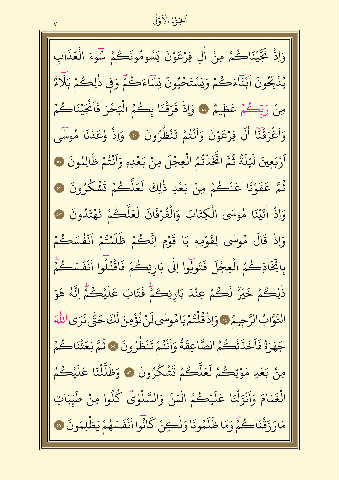 الجزء الأول
وَاِذْ نَجَّيْنَاكُمْ مِنْ اٰلِ فِرْعَوْنَ يَسُومُونَكُمْ سُٓوءَ الْعَذَابِ
يُذَبِّحُونَ اَبْنَٓاءَكُمْ وَيَسْتَحْيُونَ نِسَٓاءَكُمْۜ وَفِي ذٰلِكُمْ بَلَٓاءٌ
مِنْ رَبِّكُمْ عَظِيمٌ ۞ وَاِذْ فَرَقْنَا بِكُمُ الْبَحْرَ فَاَنْجَيْنَاكُمْ
وَاَغْرَقْنَٓا اٰلَ فِرْعَوْنَ وَاَنْتُمْ تَنْظُرُونَ ۞ وَاِذْ وٰعَدْنَا مُوسٰٓى
اَرْبَعِينَ لَيْلَةً ثُمَّ اتَّخَذْتُمُ الْعِجْلَ مِنْ بَعْدِهِ وَاَنْتُمْ ظَالِمُونَ ۞
ثُمَّ عَفَوْنَا عَنْكُمْ مِنْ بَعْدِ ذٰلِكَ لَعَلَّكُمْ تَشْكُرُونَ ۞
وَاِذْ اٰتَيْنَا مُوسَى الْكِتَابَ وَالْفُرْقَانَ لَعَلَّكُمْ تَهْتَدُونَ ۞
وَاِذْ قَالَ مُوسٰى لِقَوْمِهِ يَا قَوْمِ اِنَّكُمْ ظَلَمْتُمْ اَنْفُسَكُمْ
بِاتِّخَاذِكُمُ الْعِجْلَ فَتُوبُٓوا اِلٰى بَارِئِكُمْ فَاقْتُلُٓوا اَنْفُسَكُمْۜ
ذٰلِكُمْ خَيْرٌ لَكُمْ عِنْدَ بَارِئِكُمْۜ فَتَابَ عَلَيْكُمْۜ اِنَّهُ هُوَ
التَّوَّابُ الرَّحِيمُ ۞ وَاِذْ قُلْتُمْ يَا مُوسٰى لَنْ نُؤْمِنَ لَكَ حَتّٰى نَرَى اللّٰهَ
جَهْرَةً فَاَخَذَتْكُمُ الصَّاعِقَةُ وَاَنْتُمْ تَنْظُرُونَ ۞ ثُمَّ بَعَثْنَاكُمْ
مِنْ بَعْدِ مَوْتِكُمْ لَعَلَّكُمْ تَشْكُرُونَ ۞ وَظَلَّلْنَا عَلَيْكُمُ
الْغَمَامَ وَاَنْزَلْنَا عَلَيْكُمُ الْمَنَّ وَالسَّلْوٰىۜ كُلُوا مِنْ طَيِّبَاتِ
مَا رَزَقْنَاكُمْۜ وَمَا ظَلَمُونَا وَلٰكِنْ كَانُٓوا اَنْفُسَهُمْ يَظْلِمُونَ ۞